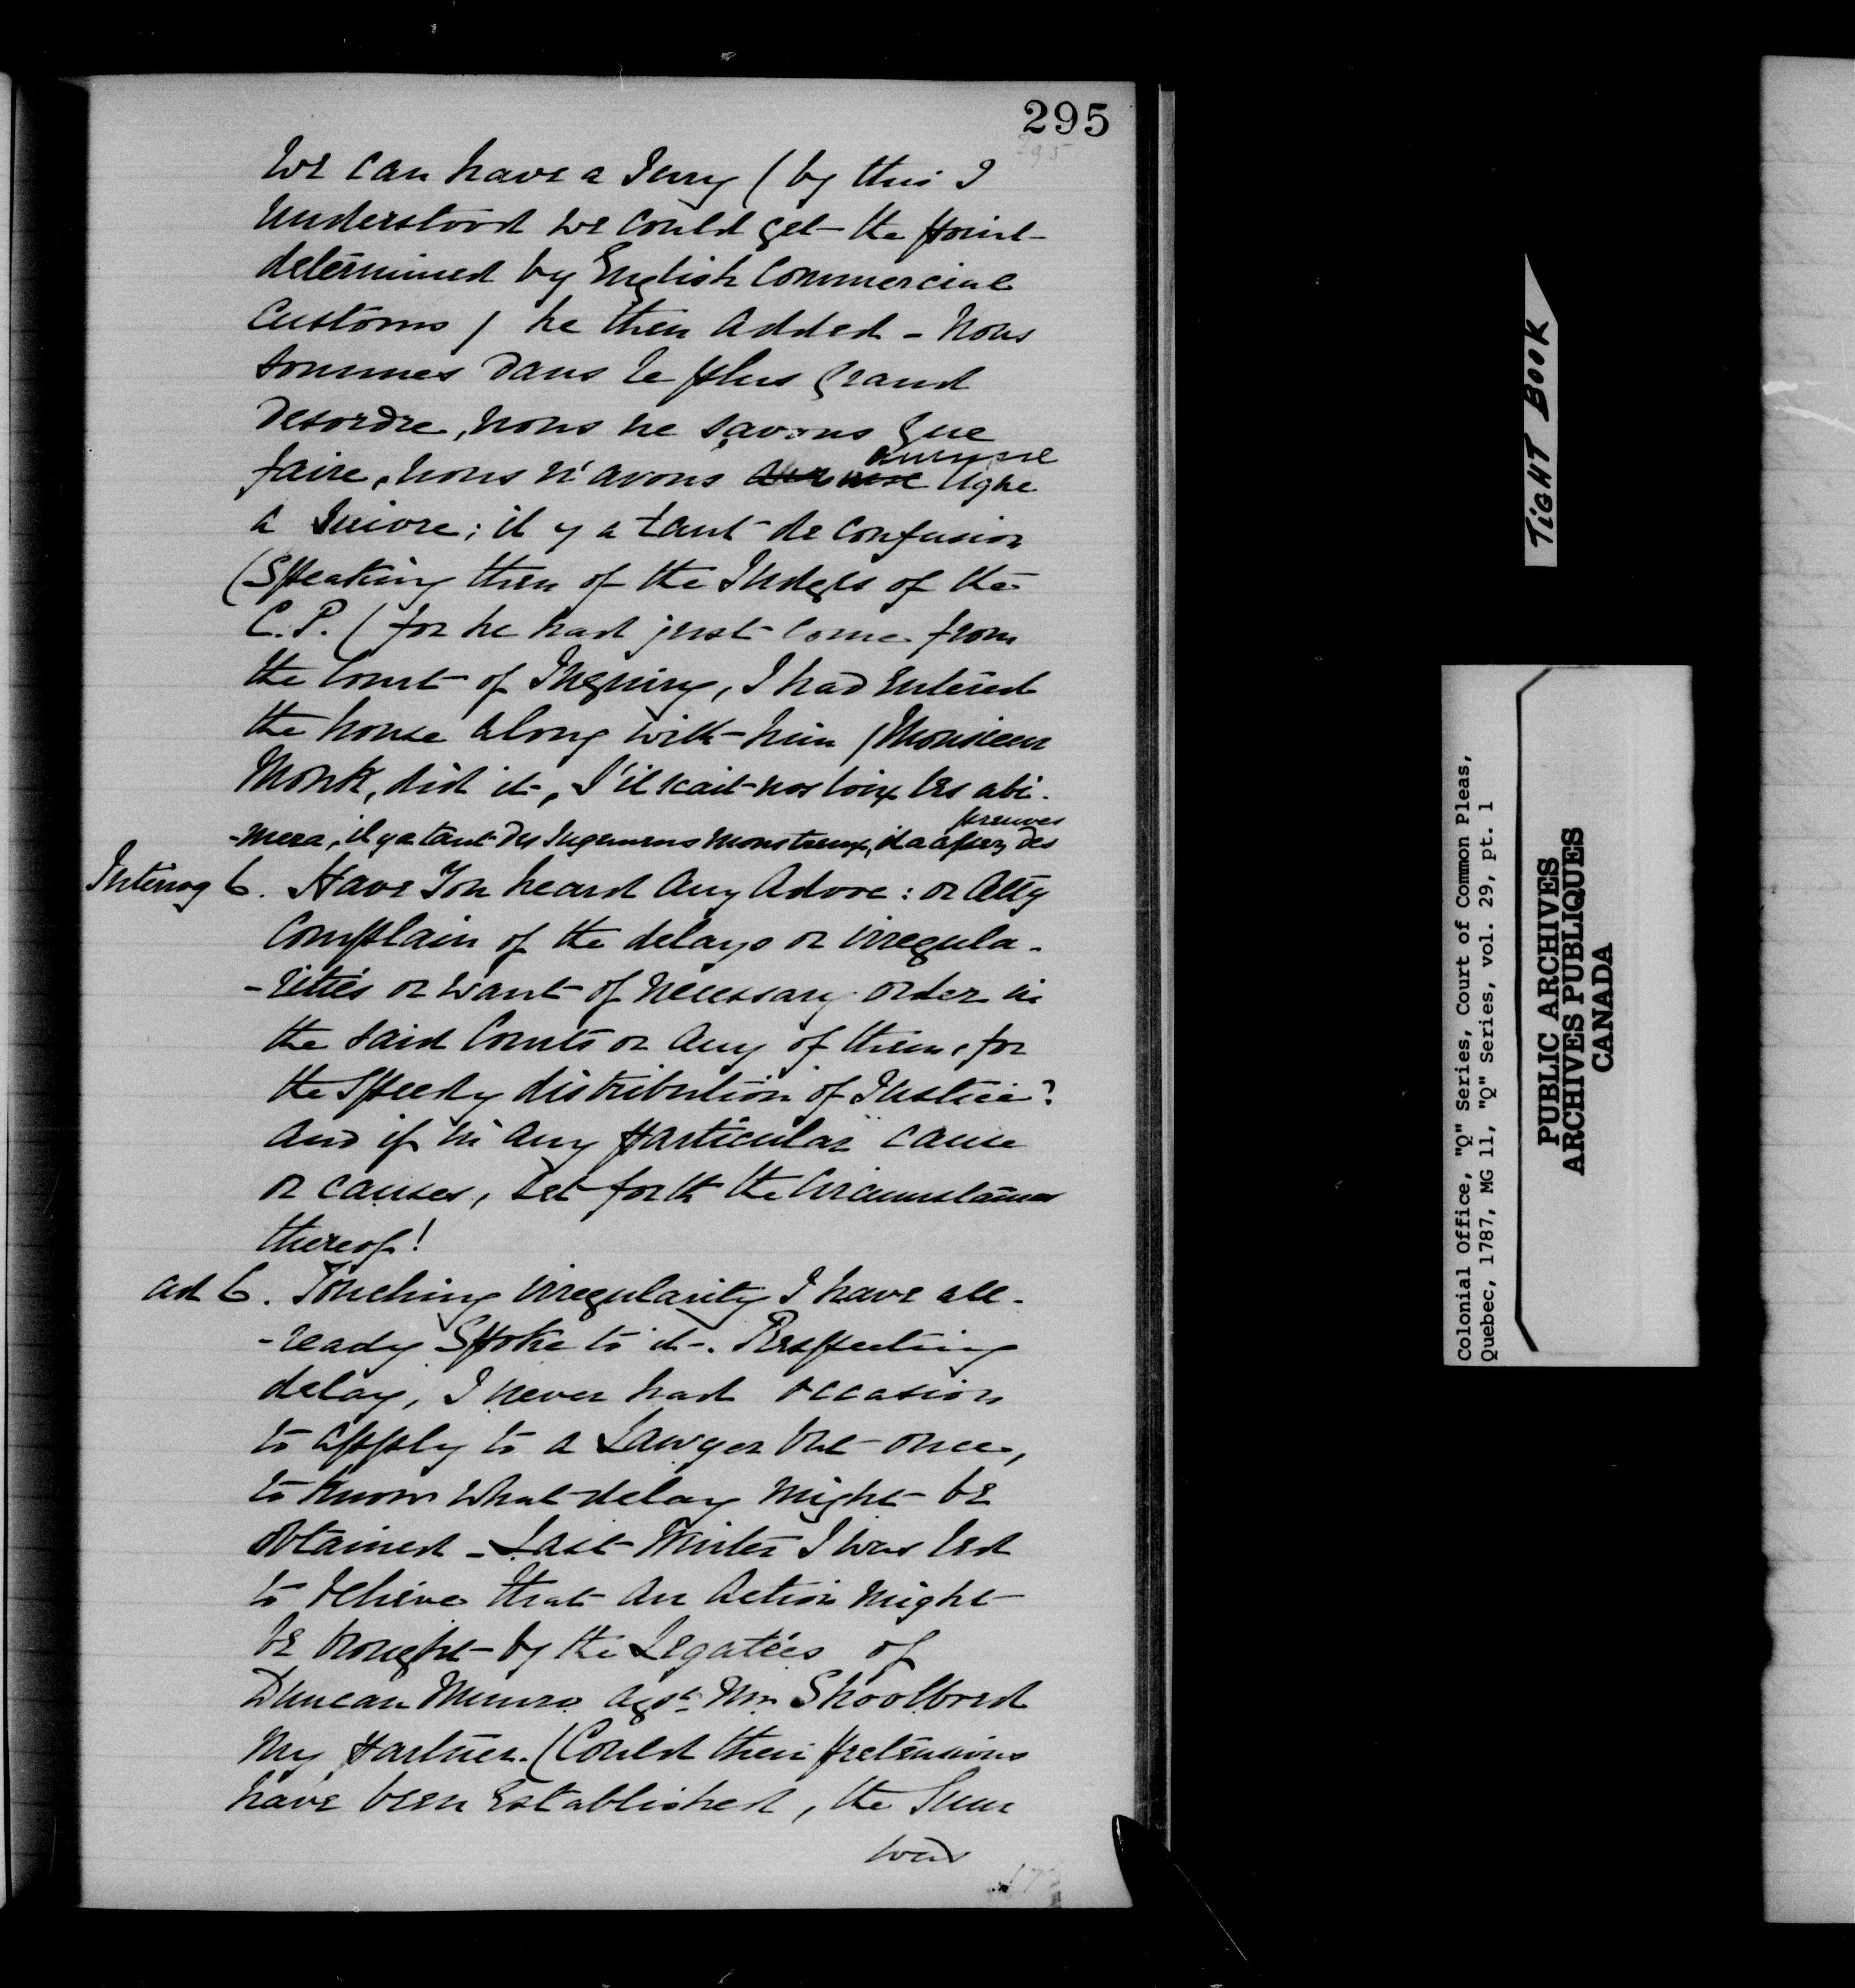 295
295
We can have a Jury (by this I
understood we could get the point
determined by English Commercial
Customs) he then added - Nous
sommes dans le plus grand
desordre, nous ne savons que
faire, nous n'avons aucune ligne
a Suivre; il y a tant de confusion
(Speaking then of the Judges of the
C.P. (for he had just come from
the Court of Inquiry, I had entered
the house along with him) Monsieur
Monk, dit il, S'il scait nos loix les abi-
-mera, il y a tant des Jugemens monstreux, il a assez des preuves
Interrog 6. Have You heard any Advoc: or Atty
Complain of the delays or irregula-
-rities or want of necessary order in
the said Courts or any of them, for
the Speedy distribution of Justice?
and if in any particular cause
or causes, set forth the Circumstances
thereof!
ad 6. Touching irregularity I have all-
-ready Spoke to it -. Respecting
delay, I never had occasion
to apply to a Lawyer but once,
to know what delay might be
obtained - Last Winter I was led
to believe that an Action might
be brought by the Legatees of
Duncan Munro agst. Mr. Shoolbred
my partner. (Could their pretensions
have been established, the Sum
was
TIGHT BOOK
Colonial Office, "Q" Series, Court of Common Pleas,
Quebec, 1787, MG 11, "Q" Series, vol. 29, pt. 1
PUBLIC ARCHIVES
ARCHIVES PUBLIQUES
CANADA